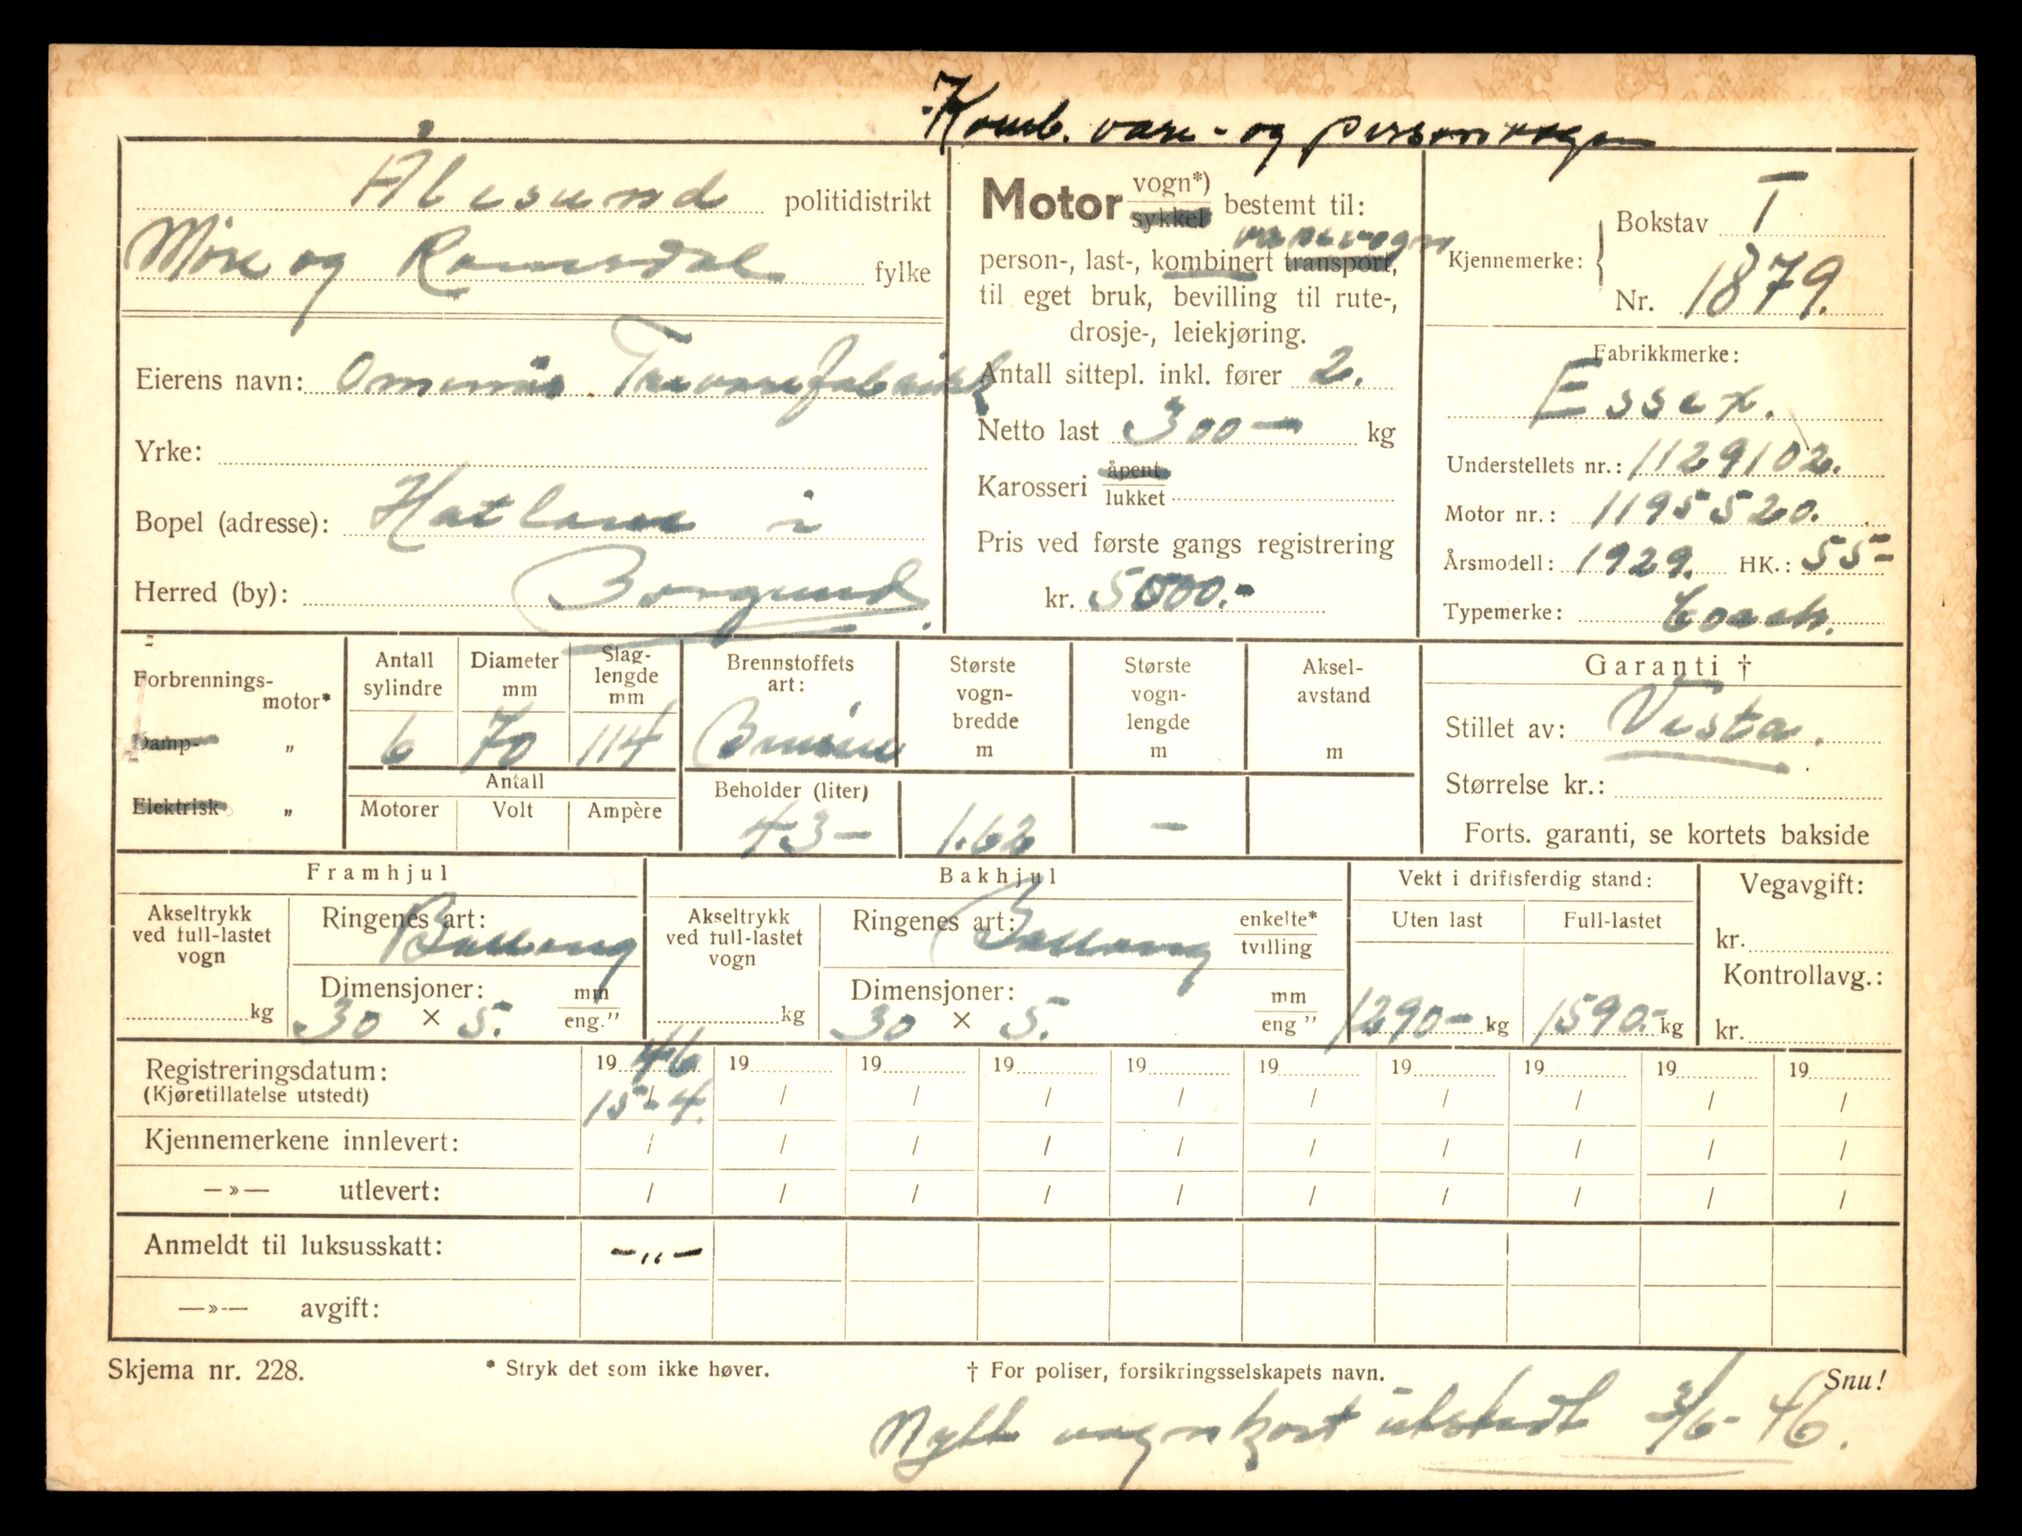 Komb. vare- og personvogn
Ålesund politidistrikt
Møre og Romsdal fylke
Eierens navn: Trevarefabrikk
Yrke:
Bopel (adresse): Hatlane i
Herred (by): Borgund.
Motor vogn*) sykkel bestemt til:
varevogn
person-, last-, kombinert transport,
til eget bruk, bevilling til rute-,
drosje-, leiekjøring.
Antall sittepl. inkl. fører 2.
Netto last 300- kg
Karosseri åpent lukket
Pris ved første gangs registrering
kr. 5500.-
Kjennemerke: Bokstav T
Nr. 1879.
Fabrikkmerke:
Essex.
Understellets nr.: 1129102.
Motor nr.: 1195520.
Årsmodell: 1929. HK.: 55-
Typemerke: Coach.
Forbrennings-motor*
Damp- „
Elektrisk „
Antall sylindre 6
Diameter mm 70
Slag-lengde mm 114
Antall
Motorer Volt Ampère
Brennstoffets art: Bensin
Beholder (liter) 43-
Største vogn-bredde m 1.62
Største vogn-lengde m -
Aksel-avstand m
Garanti †
Stillet av: Vesta.
Størrelse kr.:
Forts. garanti, se kortets bakside
Framhjul
Akseltrykk ved full-lastet vogn kg
Ringenes art: Ballong
Dimensjoner: mm eng."
30 × 5.
Bakhjul
Akseltrykk ved full-lastet vogn kg
Ringenes art: Ballong enkelte* tvilling
Dimensjoner: mm eng "
30 × 5.
Vekt i driftsferdig stand:
Uten last 1290- kg
Full-lastet 1590.- kg
Vegavgift:
kr.
Kontrollavg.:
kr.
Registreringsdatum: 1946 19 19 19 19 19 19 19 19 19
(Kjøretillatelse utstedt) 15-4. / / / / / / / / /
Kjennemerkene innlevert: / / / / / / / / / /
—»— utlevert: / / / / / / / / / /
Anmeldt til luksusskatt: -"-
—»— avgift:
Skjema nr. 228. * Stryk det som ikke høver. † For poliser, forsikringsselskapets navn. Snu!
Nytt vognkort utstedt 3/6-46.